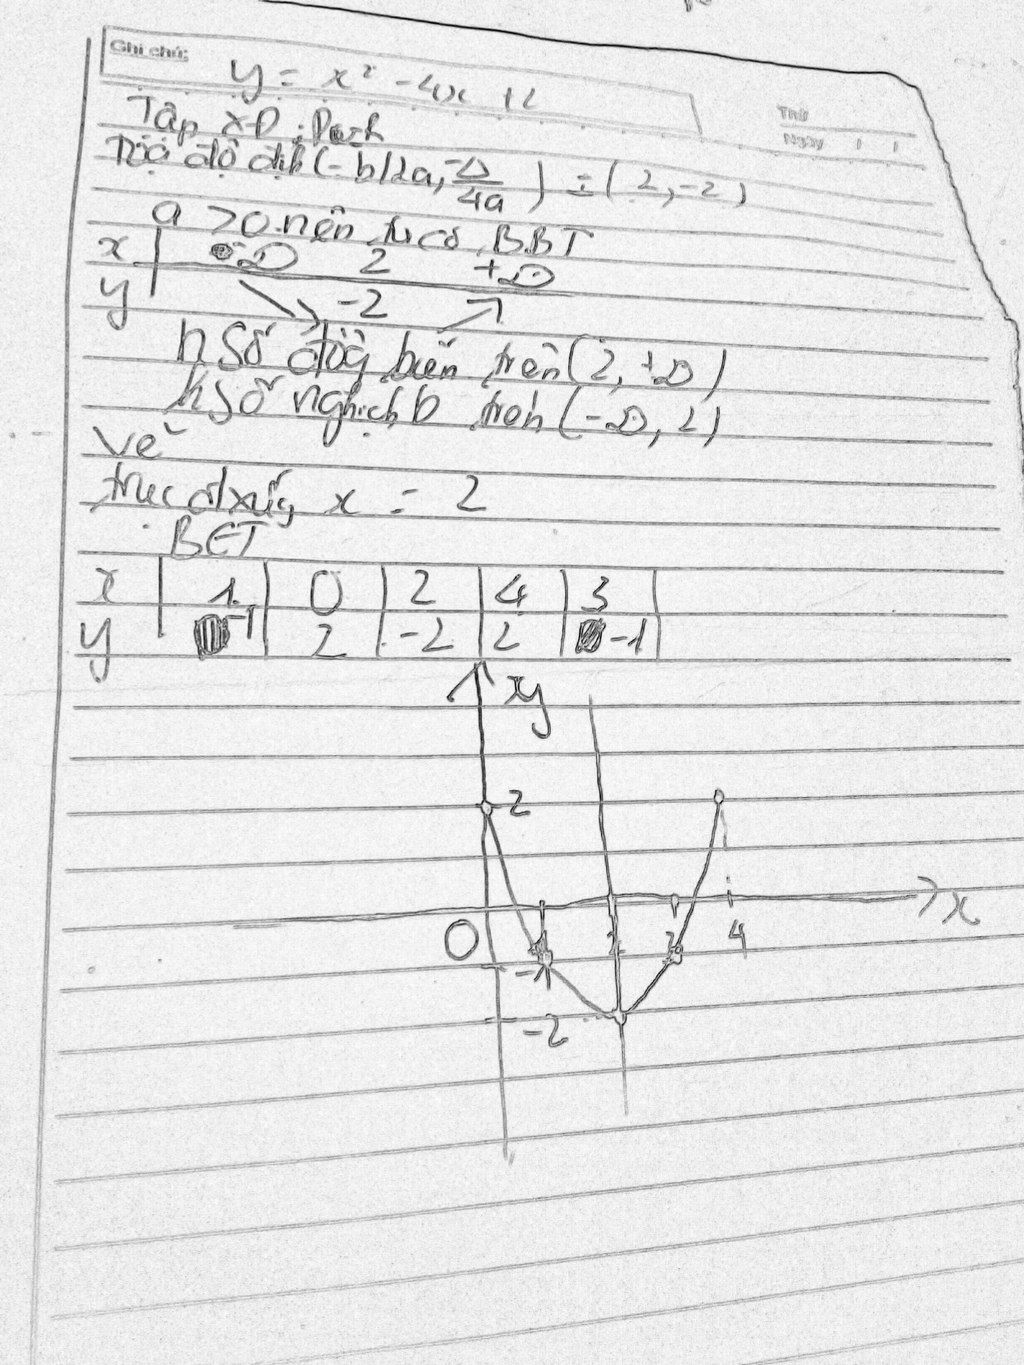 Ghi chú:
y = x² - 4x + 2
Thứ
Ngày / /
Tập XĐ:
Tọa độ đỉnh (-b/2a, -Δ/4a) = (2, -2)
a > 0 nên ta có BBT
x -∞ 2 +∞
y -2
h số đồng biến trên (2, +∞)
h số nghịch b trên (-∞, 2)
Vẽ
trục đ xứng x = 2
BGT
x 1 0 2 4 3
y -1 2 -2 2 -1
y
2
x
O 1 2 3 4
-1
-2